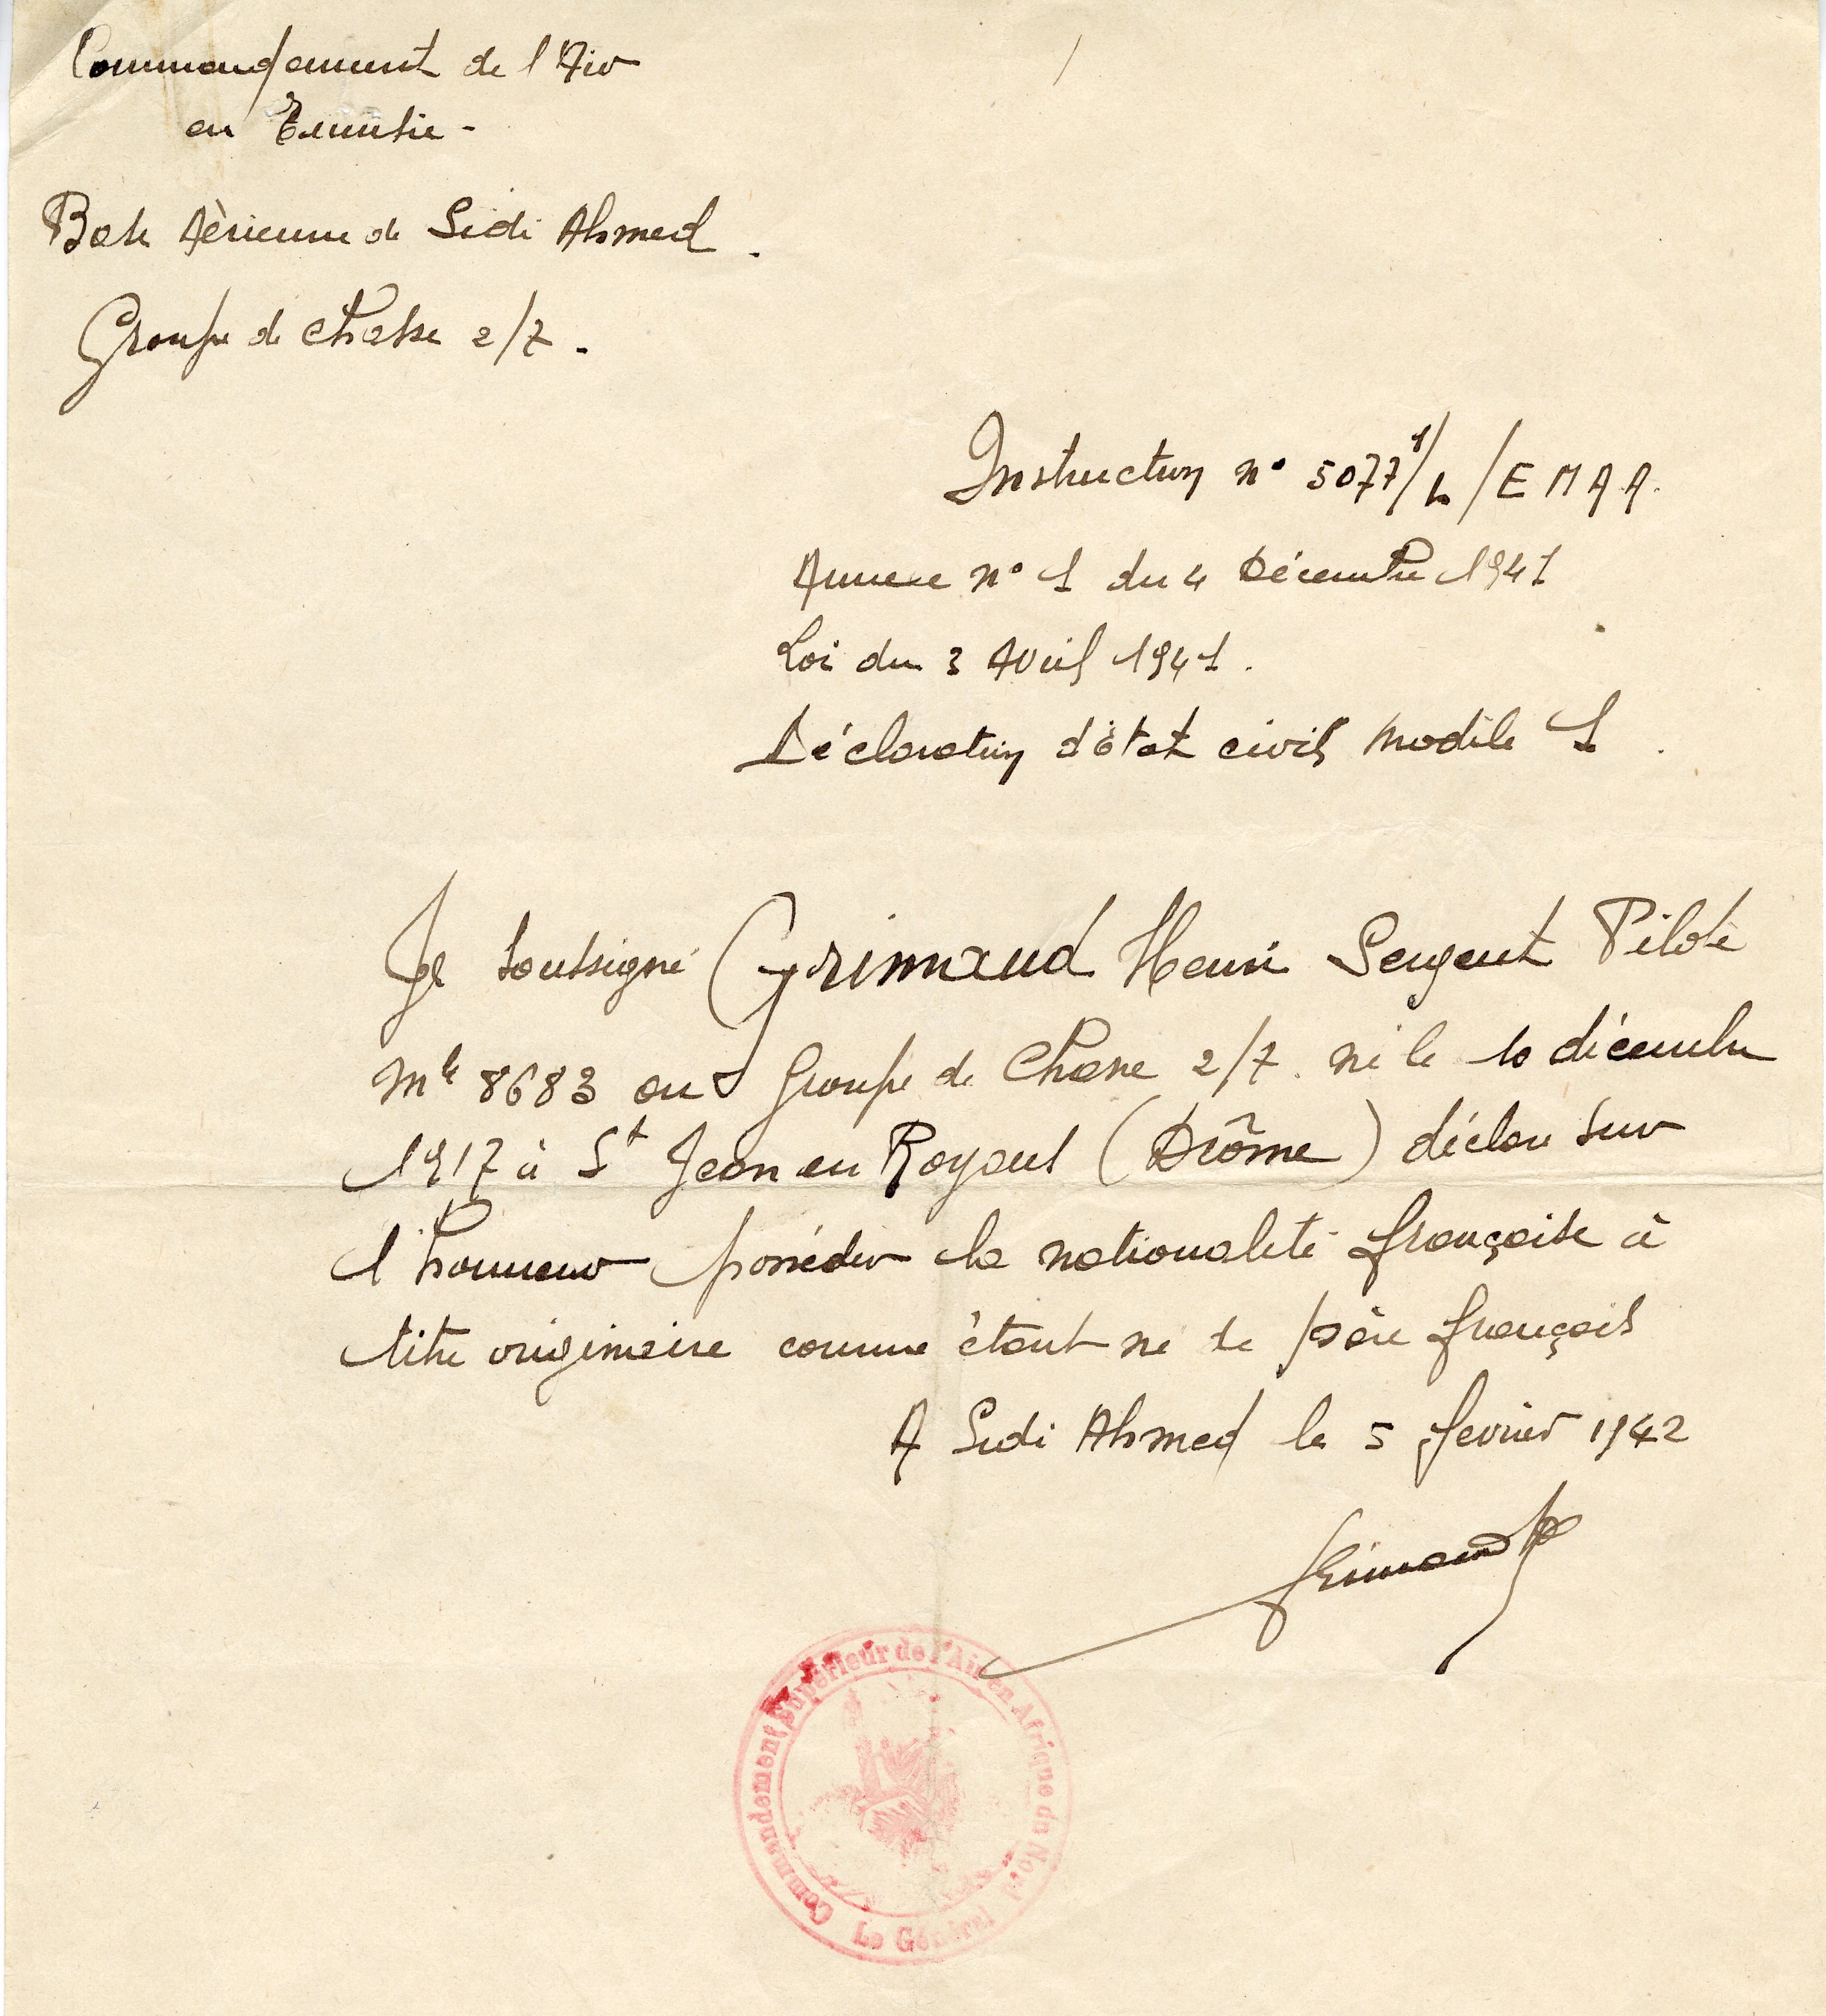 Commandement de l'Air
en Tunisie -
Base Aèrienne de Sidi Ahmed .
Groupe de Chasse 2/7 .
Instruction n° 5077 1/ /E M A A.
Annexe n° 1 du 4 Décembre 1941
Loi du 3 Avril 1941 .
Déclaration d'état civil modèle 1 .
Je soussigné Grimaud Henri Sergent Pilote
Mle 8683 au Groupe de Chasse 2/7. né le 10 décembre
1917 à St Jean en Royans (Drôme) déclare sur
l'honneur posséder la nationalité française à
titre originaire comme étant né de père français
A Sidi Ahmed le 5 fevrier 1942
Grimaud
Commandement Supérieur de l'Air en Afrique du Nord
Le Général